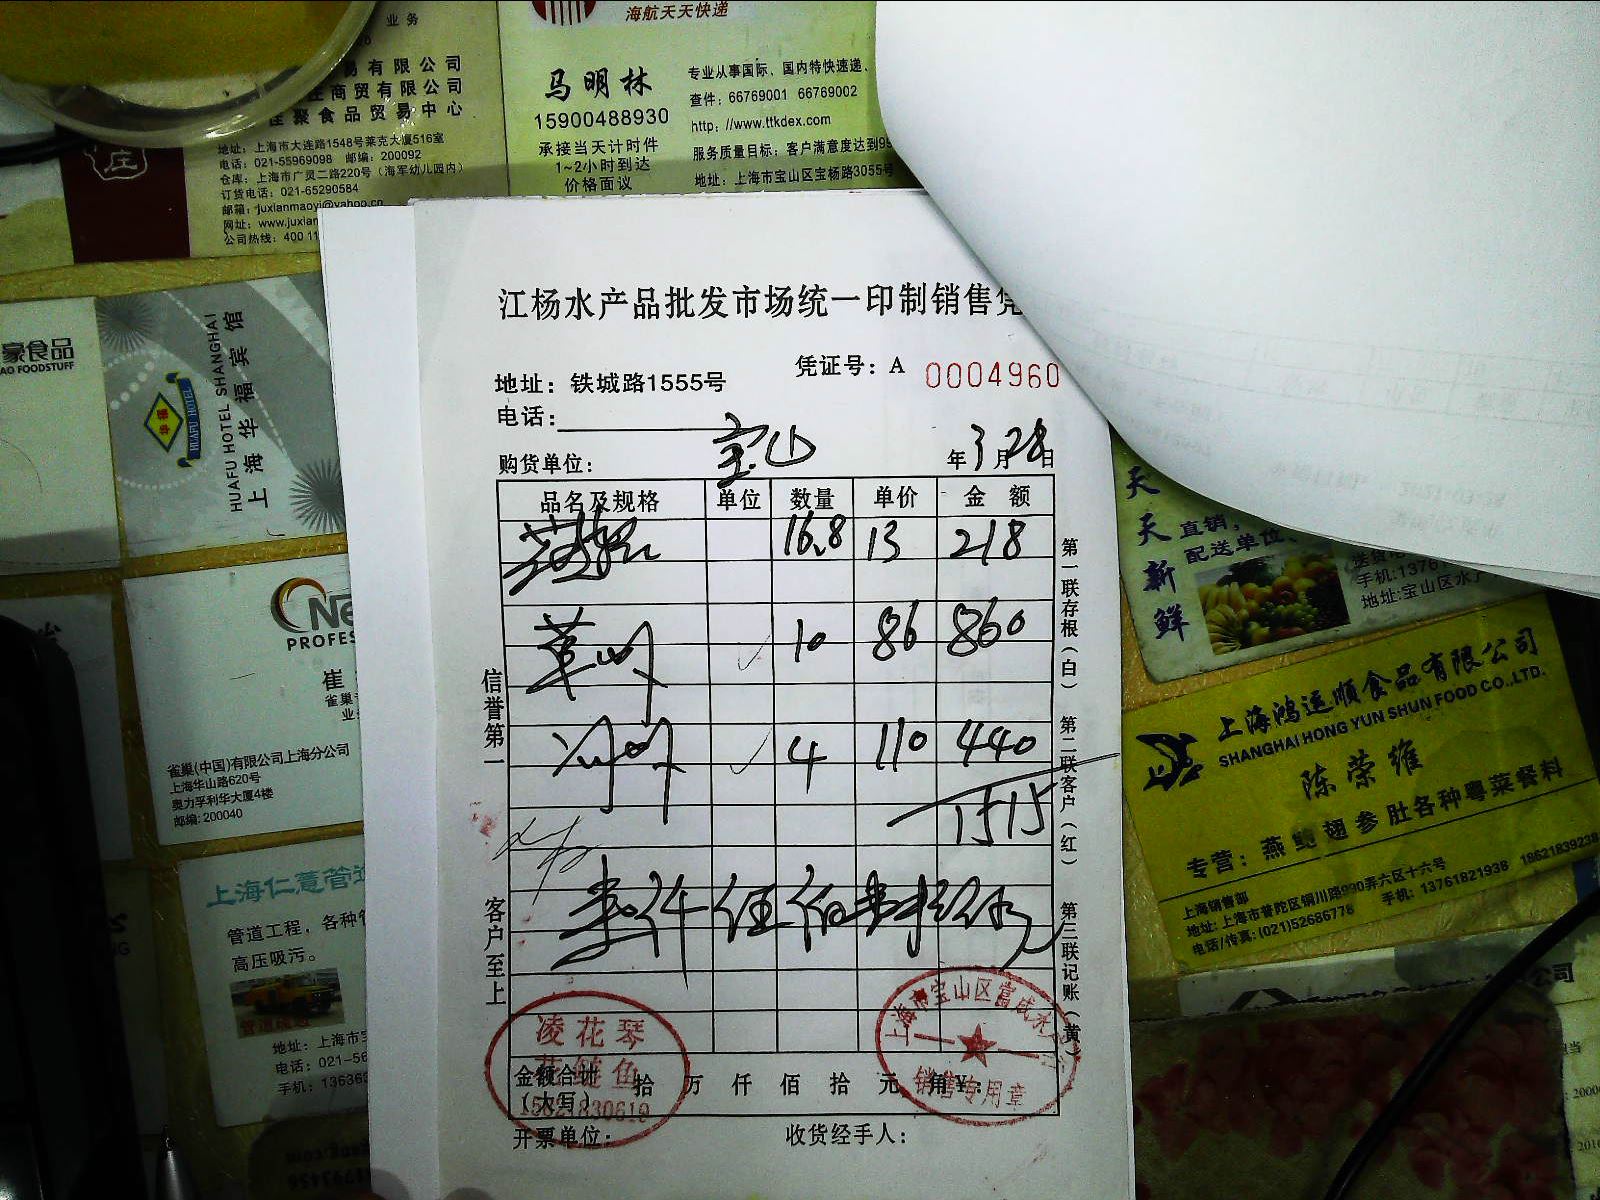 业务
易有限公司
庄商贸有限公司
佳聚食品贸易中心
地址：上海市大连路1548号莱克大厦516室
电话：021-55969098 邮编：200092
仓库：上海市广灵二路220号（海军幼儿园内）
订货电话：021-65290584
邮箱：juxianmaoyi@yahoo.cn
网址：www.juxian
公司热线：400 11
庄
海航天天快递
马明林
15900488930
承接当天计时件
1~2小时到达
价格面议
专业从事国际、国内特快速递、
查件：66769001 66769002
http://www.ttkdex.com
服务质量目标：客户满意度达到99
地址：上海市宝山区宝杨路3055号
豪食品
AO FOODSTUFF
HUAFU HOTEL
HUAFU HOTEL SHANGHAI
上海华福宾馆
PROFES
崔
雀巢(中国)有限公司上海分公司
上海华山路620号
奥力孚利华大厦4楼
邮编：200040
上海仁薏管道
管道工程，各种管
高压吸污。
地址：上海市宝
电话：021-56
手机：13636
江杨水产品批发市场统一印制销售凭
凭证号：A 0004960
地址：铁城路1555号
电话：
购货单位： 宝山 年3月28日
品名及规格 单位 数量 单价 金额
16.8 13 218
10 86 860
4 110 440
1515
信誉第一
客户至上
第一联存根（白）
第二联客户（红）
第三联记账（黄）
凌花琴
花鲢鱼
上海市宝山区富成水
销售专用章
金额合计
（大写）
拾万仟佰拾元角¥
开票单位： 收货经手人：
天天新鲜
直销，
配送单位、
送货
手机:1376
地址:宝山区水产
上海鸿运顺食品有限公司
SHANGHAI HONG YUN SHUN FOOD CO.,LTD.
陈荣维
专营：燕鲍翅参肚各种粤菜餐料
上海销售部
地址：上海市普陀区铜川路990弄六区十六号
电话/传真：(021)52686778 手机：13761821938 18621839238
公司